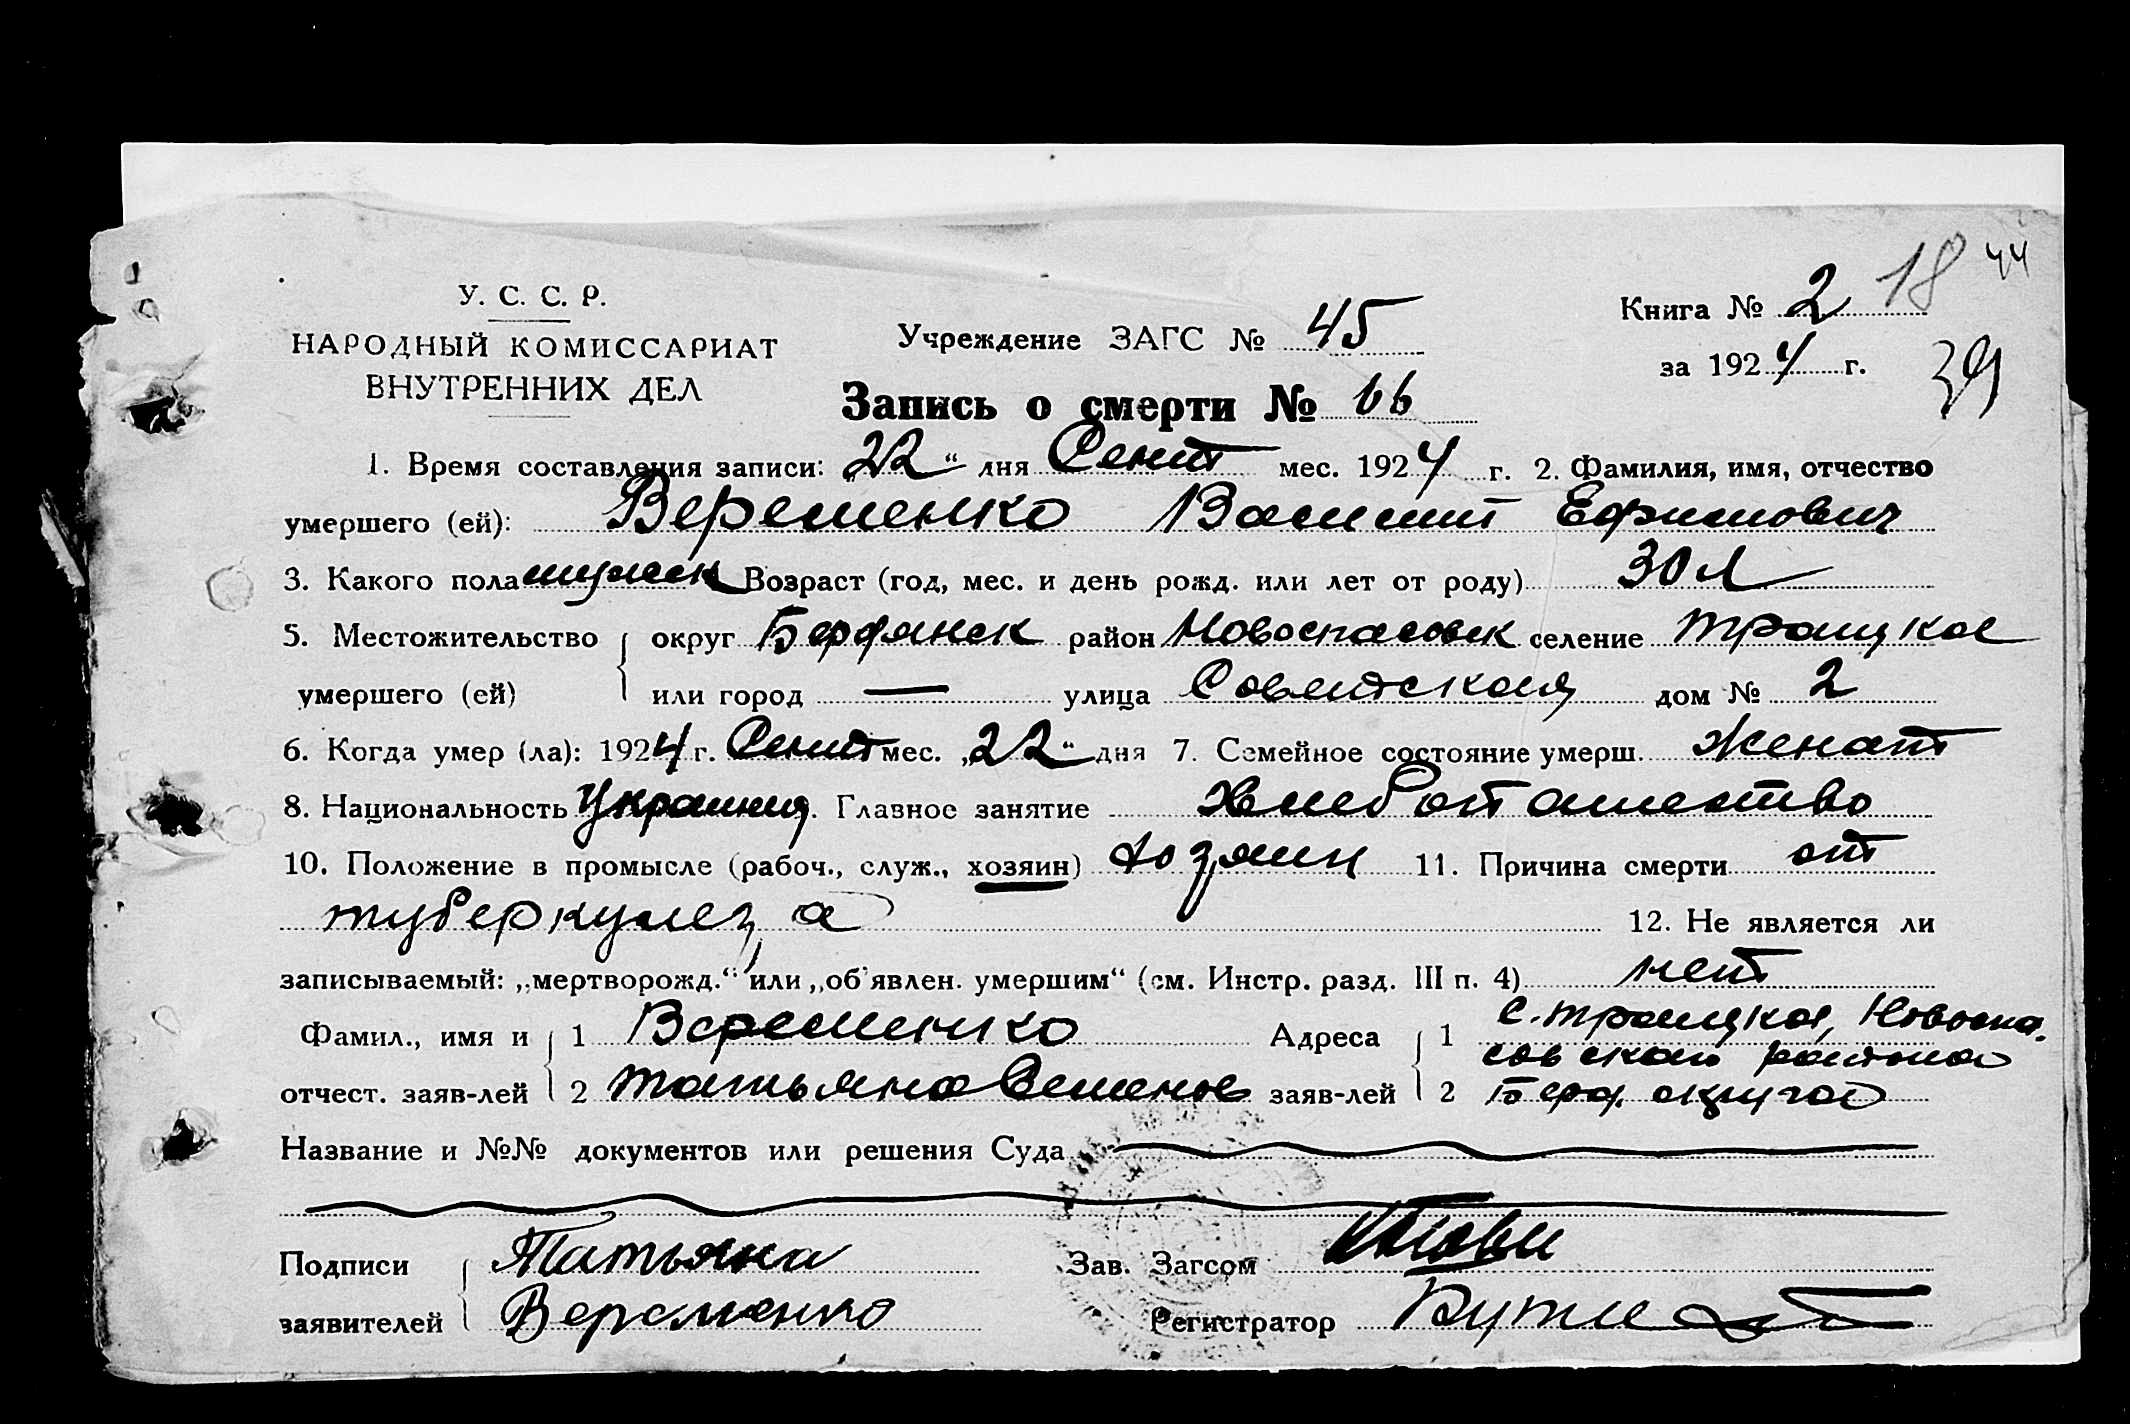 18 44
У. С. С. Р.
НАРОДНЫЙ КОМИССАРИАТ
ВНУТРЕННИХ ДЕЛ
Учреждение ЗАГС № 45
Книга № 2
за 1924 г.
39
Запись о смерти № 66
1. Время составления записи: „22“ дня Сент мес. 1924 г. 2. Фамилия, имя, отчество
умершего (ей): Веременко Василий Ефимович
3. Какого пола мужск Возраст (год, мес. и день рожд. или лет от роду) 30 л
5. Местожительство округ Бердянск район Новоспасовск селение Троицкое
умершего (ей) или город — улица Советская дом № 2
6. Когда умер (ла): 1924 г. Сент мес. „22“ дня 7. Семейное состояние умерш. Женат
8. Национальность Украинец. Главное занятие Хлебопашество
10. Положение в промысле (рабоч., служ., хозяин) хозяин 11. Причина смерти от
туберкулеза 12. Не является ли
записываемый: „мертворожд.“ или „об'явлен. умершим“ (см. Инстр. разд. III п. 4) нет
Фамил., имя и 1 Веременко Адреса 1 с. Троицкое, Новоспа-
совского района
отчест. заяв-лей 2 Татьяна Семенов заяв-лей 2 Берд. округа
Название и №№ документов или решения Суда
Подписи Татьяна Зав. Загсом
заявителей Веременко Регистратор